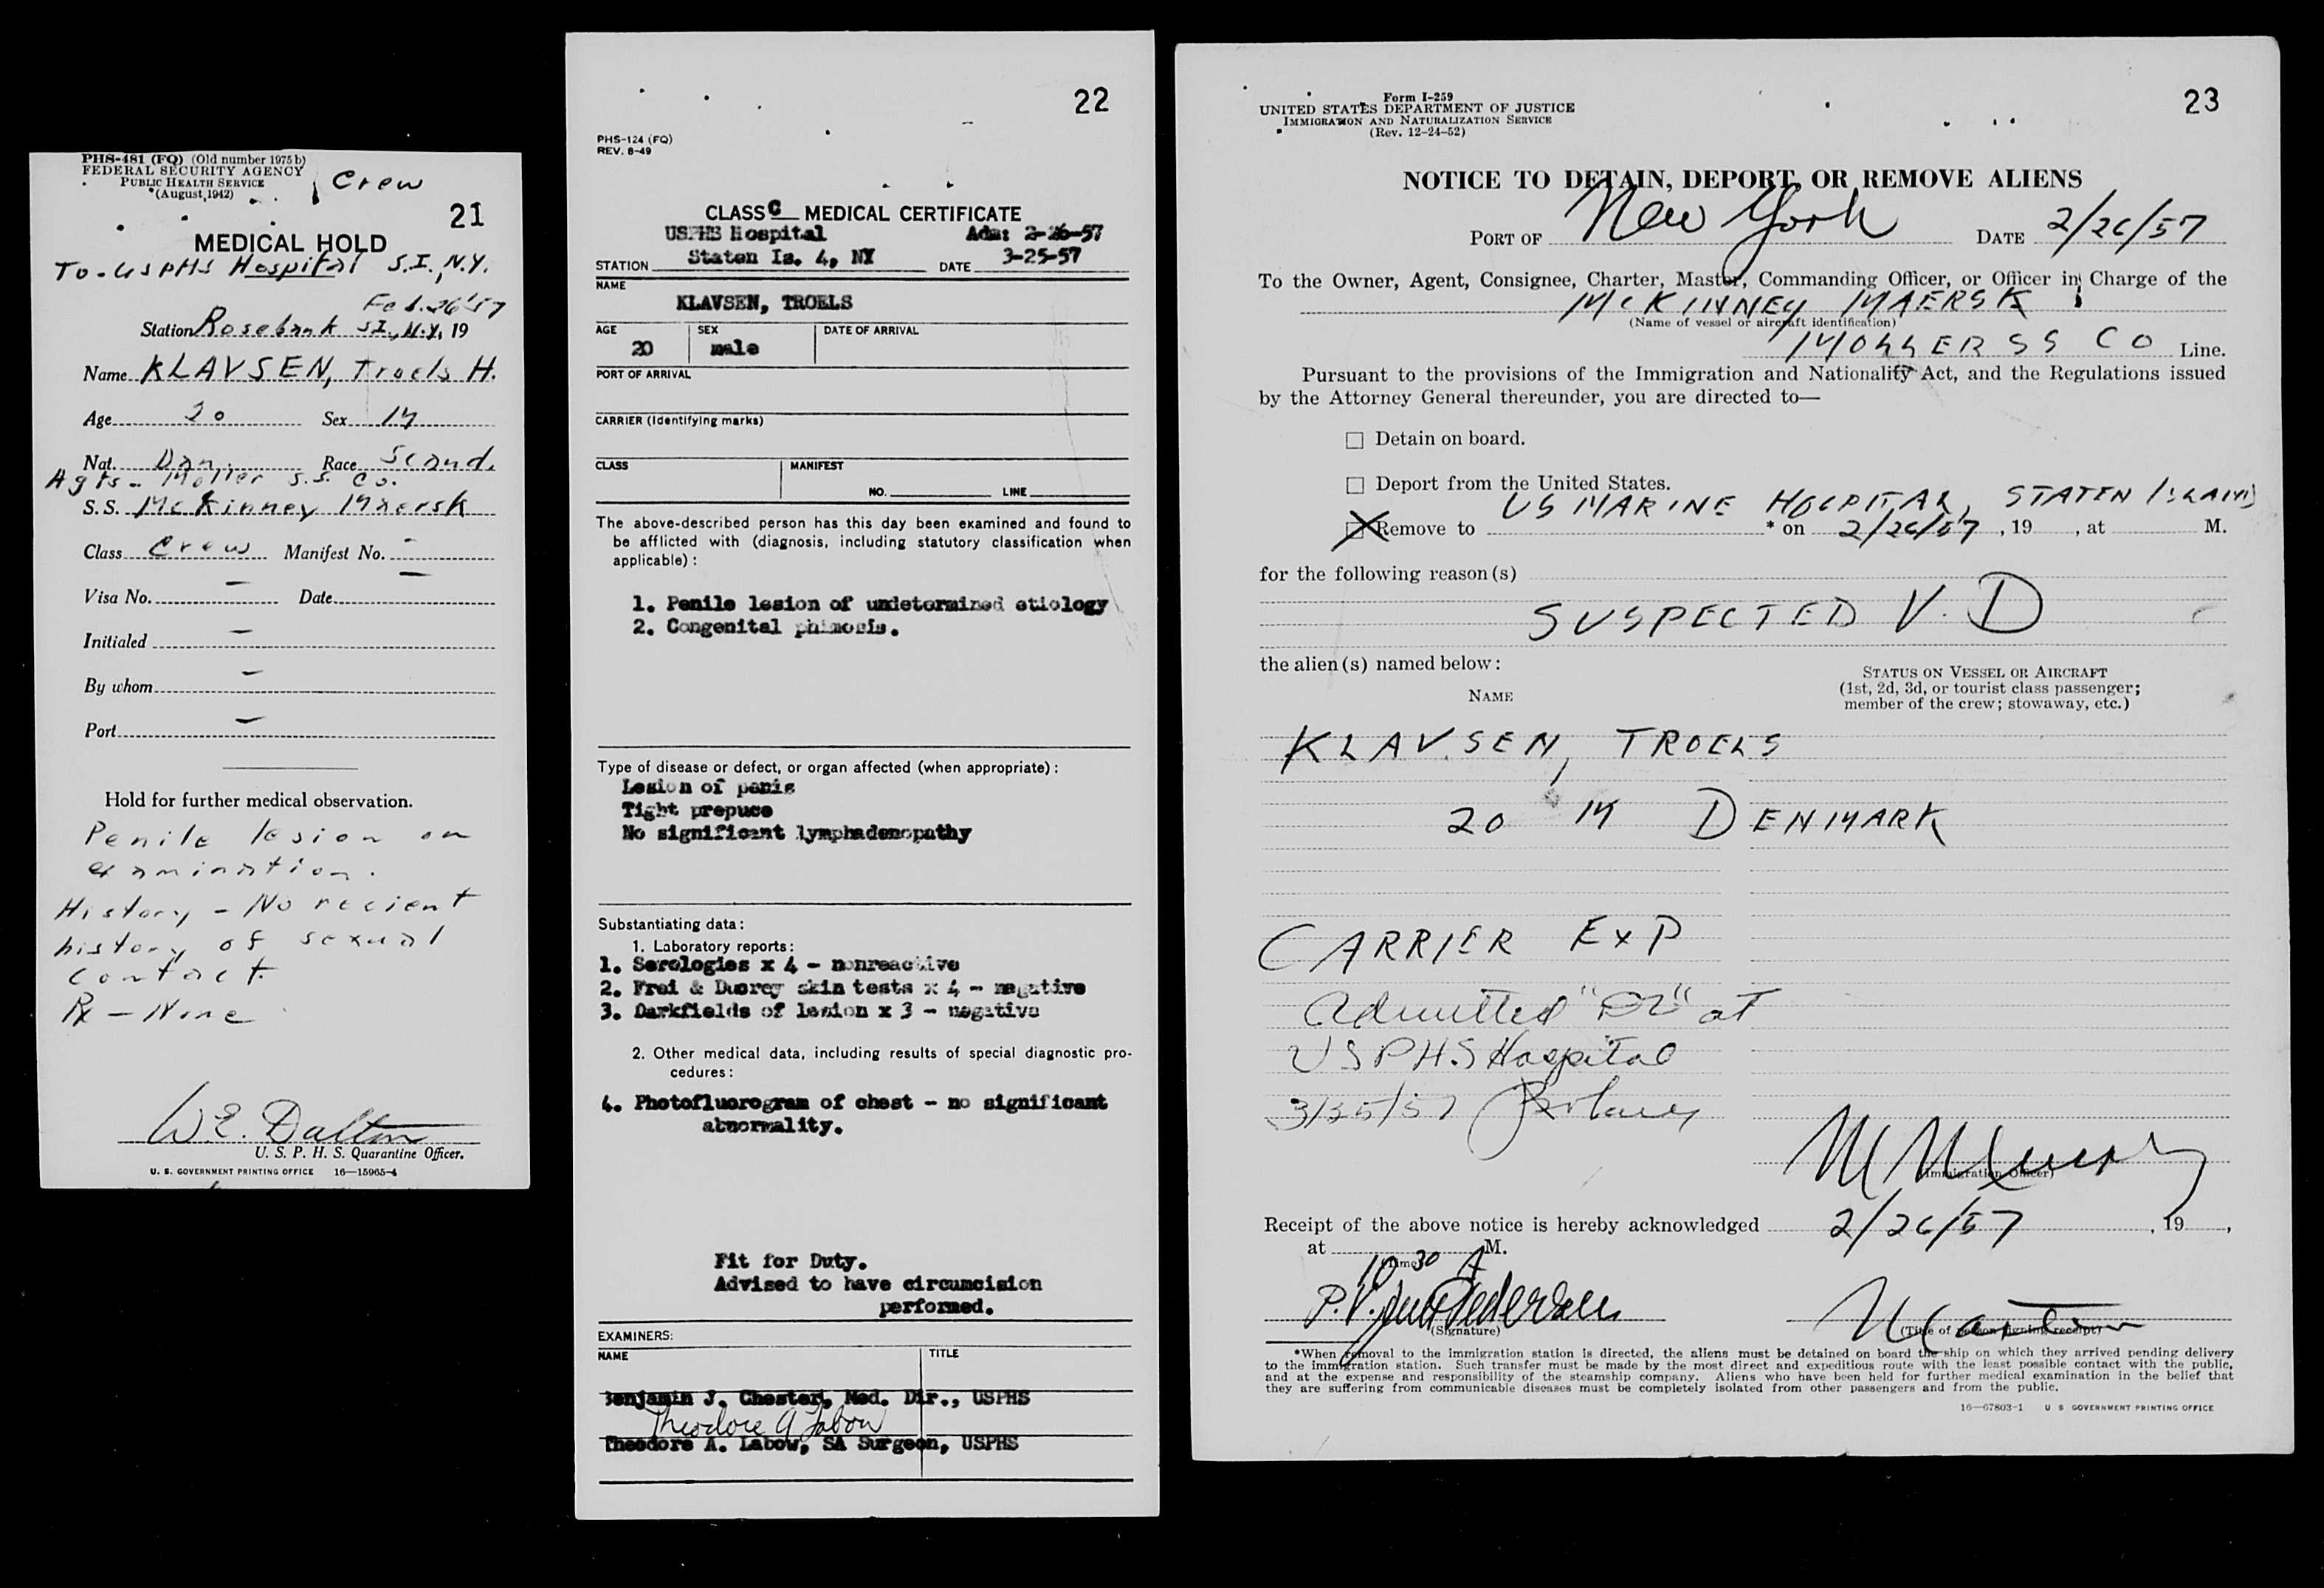 PHS-481 (FQ) (Old number 1975b)
FEDERAL SECURITY AGENCY
PUBLIC HEALTH SERVICE
(August, 1942)
Crew
21
MEDICAL HOLD
To - USPHS Hospital S.I., N.Y.
Feb. 26 '57
Station Rosebank S.I., N.Y. 19
Name KLAVSEN, Troels H.
Age 20 Sex M
Nat. Dan. Race Scand.
Agts - Moller S.S. Co.
S.S. McKinney Maersk
Class Crew Manifest No. -
Visa No. - Date -
Initialed -
By whom -
Port -
Hold for further medical observation.
Penile lesion on
examination.
History - No recient
history of sexual
contact.
Rx - None
W.E. Dalton
U. S. P. H. S. Quarantine Officer.
U. S. GOVERNMENT PRINTING OFFICE 16—15965-4
22
PHS-124 (FQ)
REV. 8-49
CLASS C MEDICAL CERTIFICATE
USPHS Hospital Adm: 2-26-57
STATION Staten Is. 4, NY DATE 3-25-57
NAME
KLAVSEN, TROELS
AGE SEX DATE OF ARRIVAL
20 male
PORT OF ARRIVAL
CARRIER (Identifying marks)
CLASS MANIFEST
NO. LINE
The above-described person has this day been examined and found to
be afflicted with (diagnosis, including statutory classification when
applicable):
1. Penile lesion of undetermined etiology
2. Congenital phimosis.
Type of disease or defect, or organ affected (when appropriate):
Lesion of penis
Tight prepuce
No significant lymphadenopathy
Substantiating data:
1. Laboratory reports:
1. Serologies x 4 - nonreactive
2. Frei & Ducrey skin tests x 4 - negative
3. Darkfields of lesion x 3 - negative
2. Other medical data, including results of special diagnostic pro-
cedures:
4. Photofluorogram of chest - no significant
abnormality.
Fit for Duty.
Advised to have circumcision
performed.
EXAMINERS:
NAME TITLE
Benjamin J. Chester, Med. Dir., USPHS
Theodore A Labow
Theodore A. Labow, SA Surgeon, USPHS
23
Form I-259
UNITED STATES DEPARTMENT OF JUSTICE
IMMIGRATION AND NATURALIZATION SERVICE
(Rev. 12-24-52)
NOTICE TO DETAIN, DEPORT, OR REMOVE ALIENS
PORT OF New York DATE 2/26/57
To the Owner, Agent, Consignee, Charter, Master, Commanding Officer, or Officer in Charge of the
MCKINNEY MAERSK
(Name of vessel or aircraft identification)
MOLLER SS CO Line.
Pursuant to the provisions of the Immigration and Nationality Act, and the Regulations issued
by the Attorney General thereunder, you are directed to—
☐ Detain on board.
☐ Deport from the United States.
US MARINE HOSPITAL, STATEN ISLAND
☒ Remove to * on 2/26/57, 19 , at M.
for the following reason(s)
SUSPECTED V. D
the alien(s) named below:
STATUS ON VESSEL OR AIRCRAFT
NAME
(1st, 2d, 3d, or tourist class passenger;
member of the crew; stowaway, etc.)
KLAVSEN, TROELS
20 M DENMARK
CARRIER EXP
Admitted " " at
USPHS Hospital
3/25/57
(Immigration Officer)
Receipt of the above notice is hereby acknowledged 2/26/57, 19 ,
at 10 30 A M.
(Time)
P.V.
(Signature)
(Title of person signing receipt)
*When removal to the immigration station is directed, the aliens must be detained on board the ship on which they arrived pending delivery
to the immigration station. Such transfer must be made by the most direct and expeditious route with the least possible contact with the public,
and at the expense and responsibility of the steamship company. Aliens who have been held for further medical examination in the belief that
they are suffering from communicable diseases must be completely isolated from other passengers and from the public.
16—67803-1 U S GOVERNMENT PRINTING OFFICE